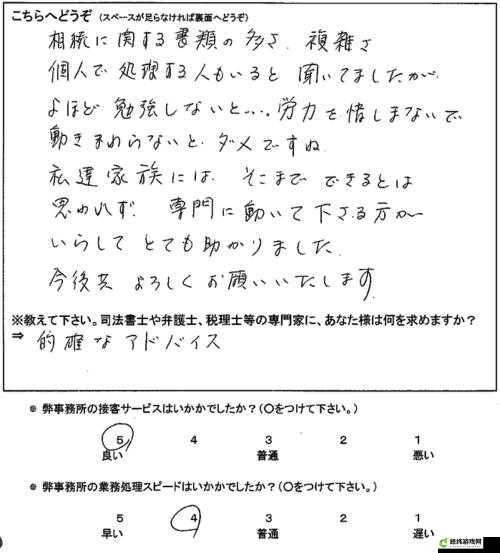 こちらへどうぞ (スペースが足らなければ裏面へどうぞ)
相続に関する書類の多さ、複雑さ
個人で処理する人もいると聞いてましたが
よほど勉強しないと…、労力を惜しまないで
動きまわらないと、ダメですね
私達家族には、そこまでできるとは
思われず、専門に動いて下さる方が
いらしてとても助かりました。
今後共よろしくお願いいたします
※教えて下さい。司法書士や弁護士、税理士等の専門家に、あなた様は何を求めますか?
⇒ 的確なアドバイス
弊事務所の接客サービスはいかかでしたか?(〇をつけて下さい。)
5 4 3 2 1
良い 普通 悪い
弊事務所の業務処理スピードはいかかでしたか?(〇をつけて下さい。)
5 4 3 2 1
早い 普通 遅い